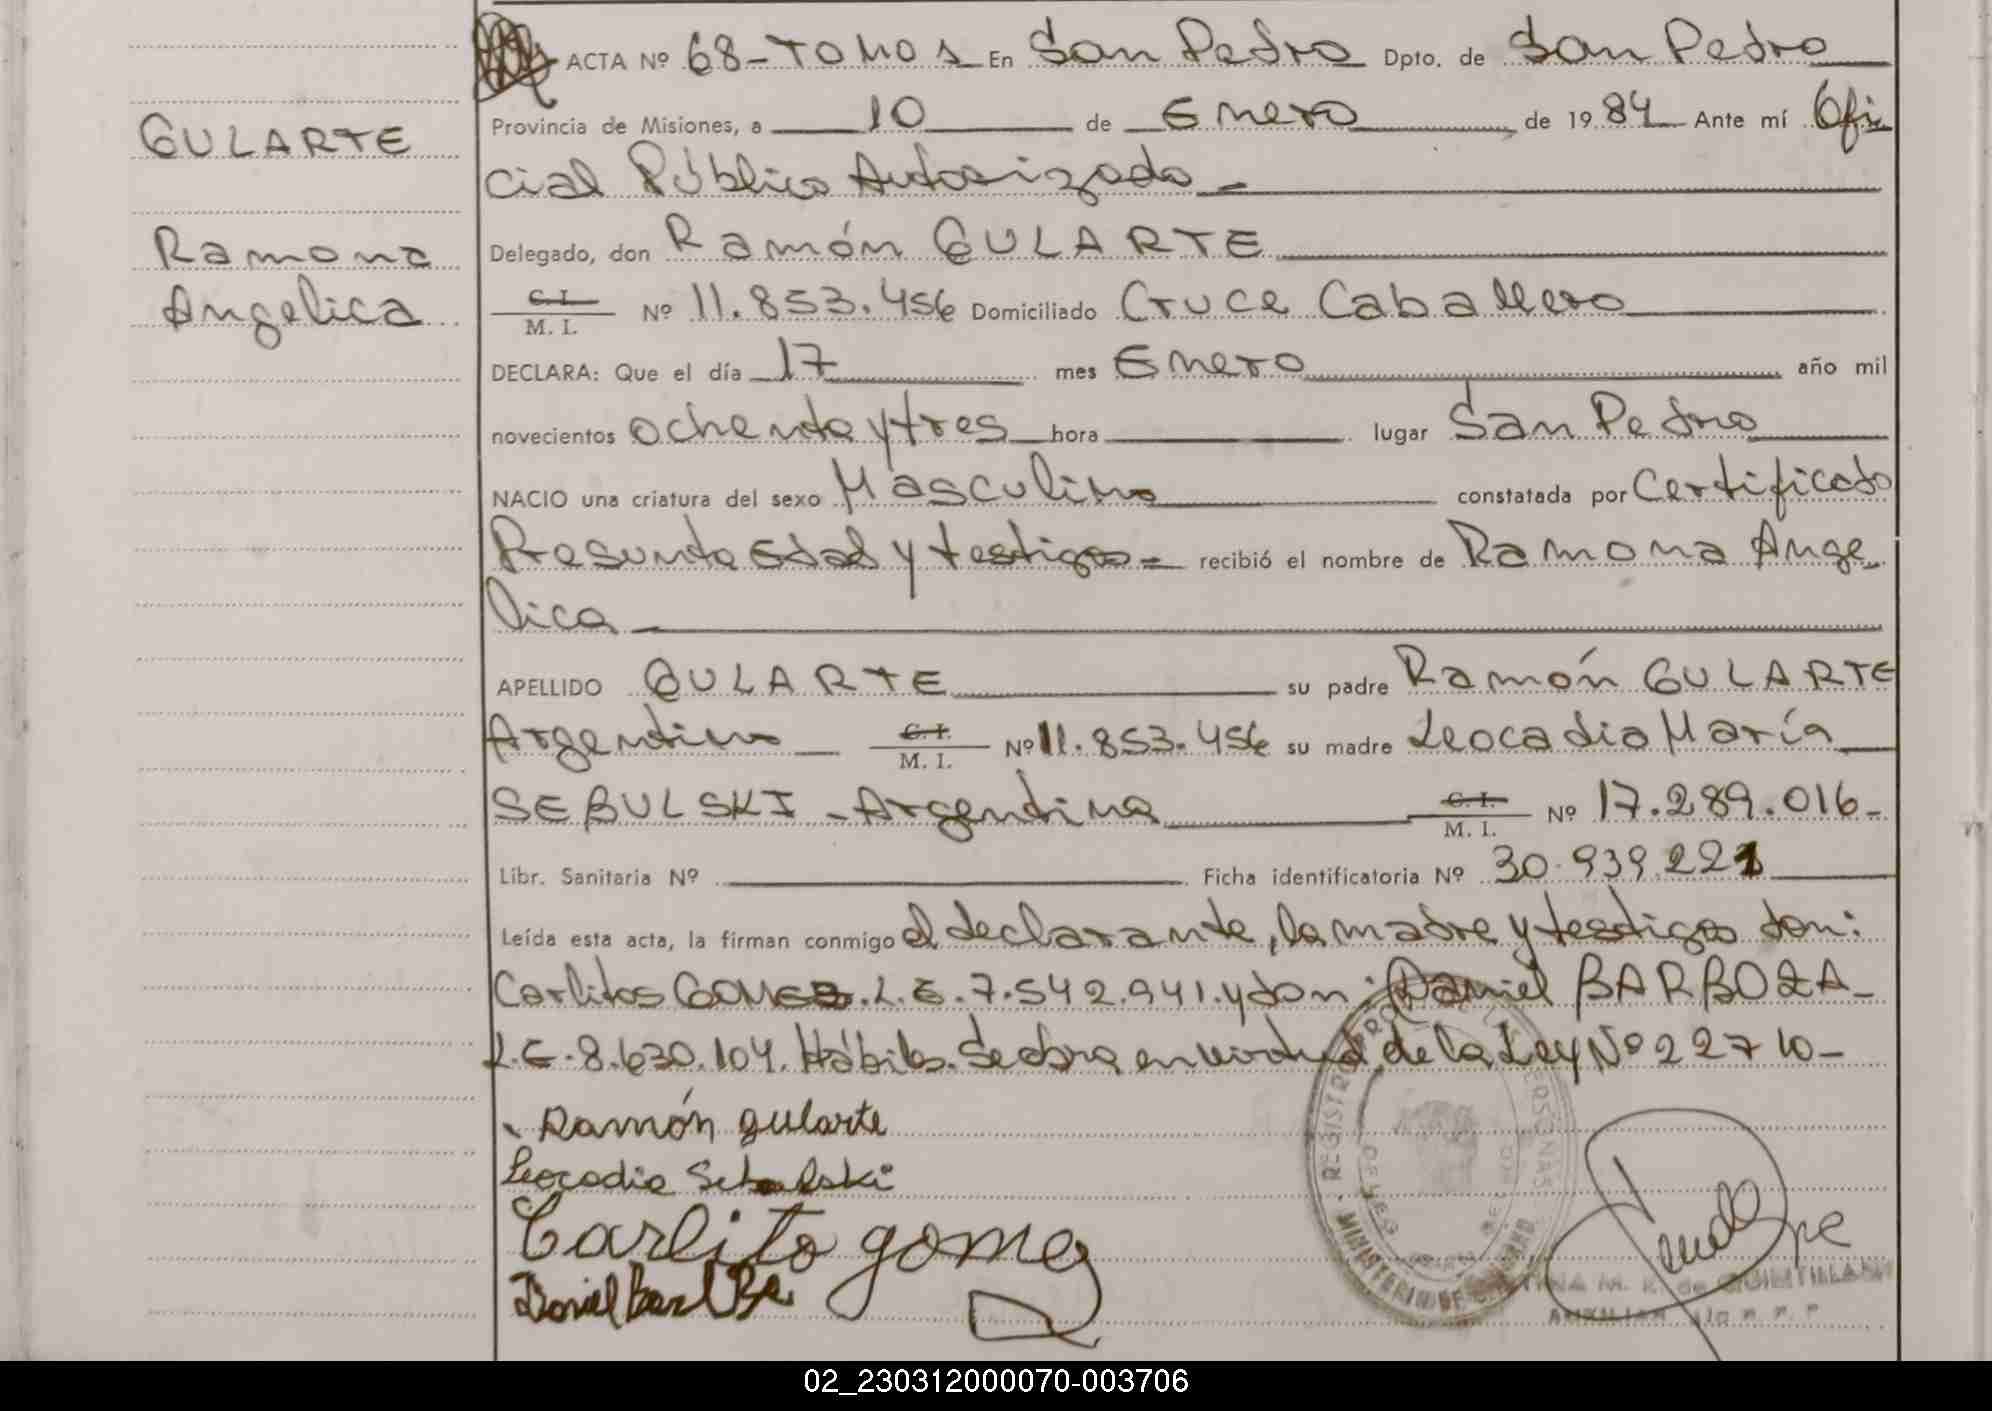 ACTA Nº 68-TOMO 1 En San Pedro Dpto. de San Pedro
Provincia de Misiones, a 10 de Enero de 1984 Ante mí Ofi
GULARTE
cial Público Autorizado
Delegado, don Ramón GULARTE
Ramona
Angelica
C. I.
M. I. Nº 11.853.456 Domiciliado Cruce Caballero
DECLARA: Que el día 17 mes Enero año mil
novecientos ochenta y tres hora lugar San Pedro
NACIO una criatura del sexo Masculino constatada por Certificado
Presunta Edad y testigos recibió el nombre de Ramona Ange
lica
APELLIDO GULARTE su padre Ramón GULARTE
Argentino C. I. M. I. Nº 11.853.456 su madre Leocadia María
SEBULSKI - Argentina C. I. M. I. Nº 17.289.016-
Libr. Sanitaria Nº Ficha identificatoria Nº 30.939.221
Leída esta acta, la firman conmigo el declarante, la madre y testigos don:
Carlitos GOMEZ. L.E. 7.542.941. y don: Daniel BARBOZA-
L.E. 8.630.104. Hábiles. Se labra en virtud de la Ley Nº 22710-
Ramón gularte
Leocadia Sebulski
Carlito gomez
REGISTRO DE LAS PERSONAS
MINISTERIO DE GOBIERNO
M. R. de QUINTILLAN
AUXILIAR
02_230312000070-003706